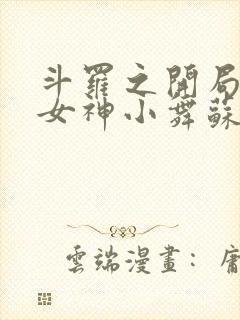 斗羅之開局
女神小舞蘇
雲端漫畫：庸